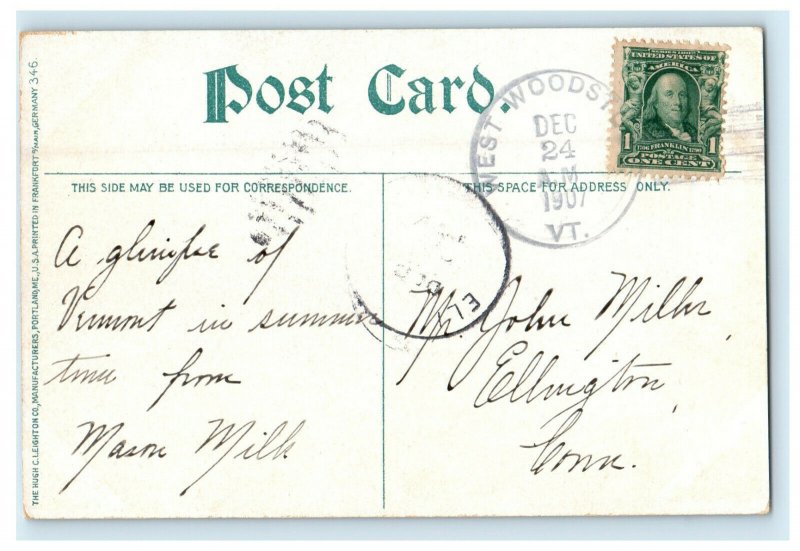 Post Card.
THIS SIDE MAY BE USED FOR CORRESPONDENCE.
THIS SPACE FOR ADDRESS ONLY.
A glimpse of
Vermont in summer
time from
Mason Milk
Mr. John Miller
Ellington,
Conn.
WEST WOODST
DEC
24
A.M
1907
VT.
SERIES 1902
UNITED STATES OF
AMERICA
1 1
1706 FRANKLIN 1790
POSTAGE
ONE CENT
ELL
THE HUGH C. LEIGHTON CO., MANUFACTURERS, PORTLAND, ME., U.S.A. PRINTED IN FRANKFORT o/MAIN, GERMANY 346